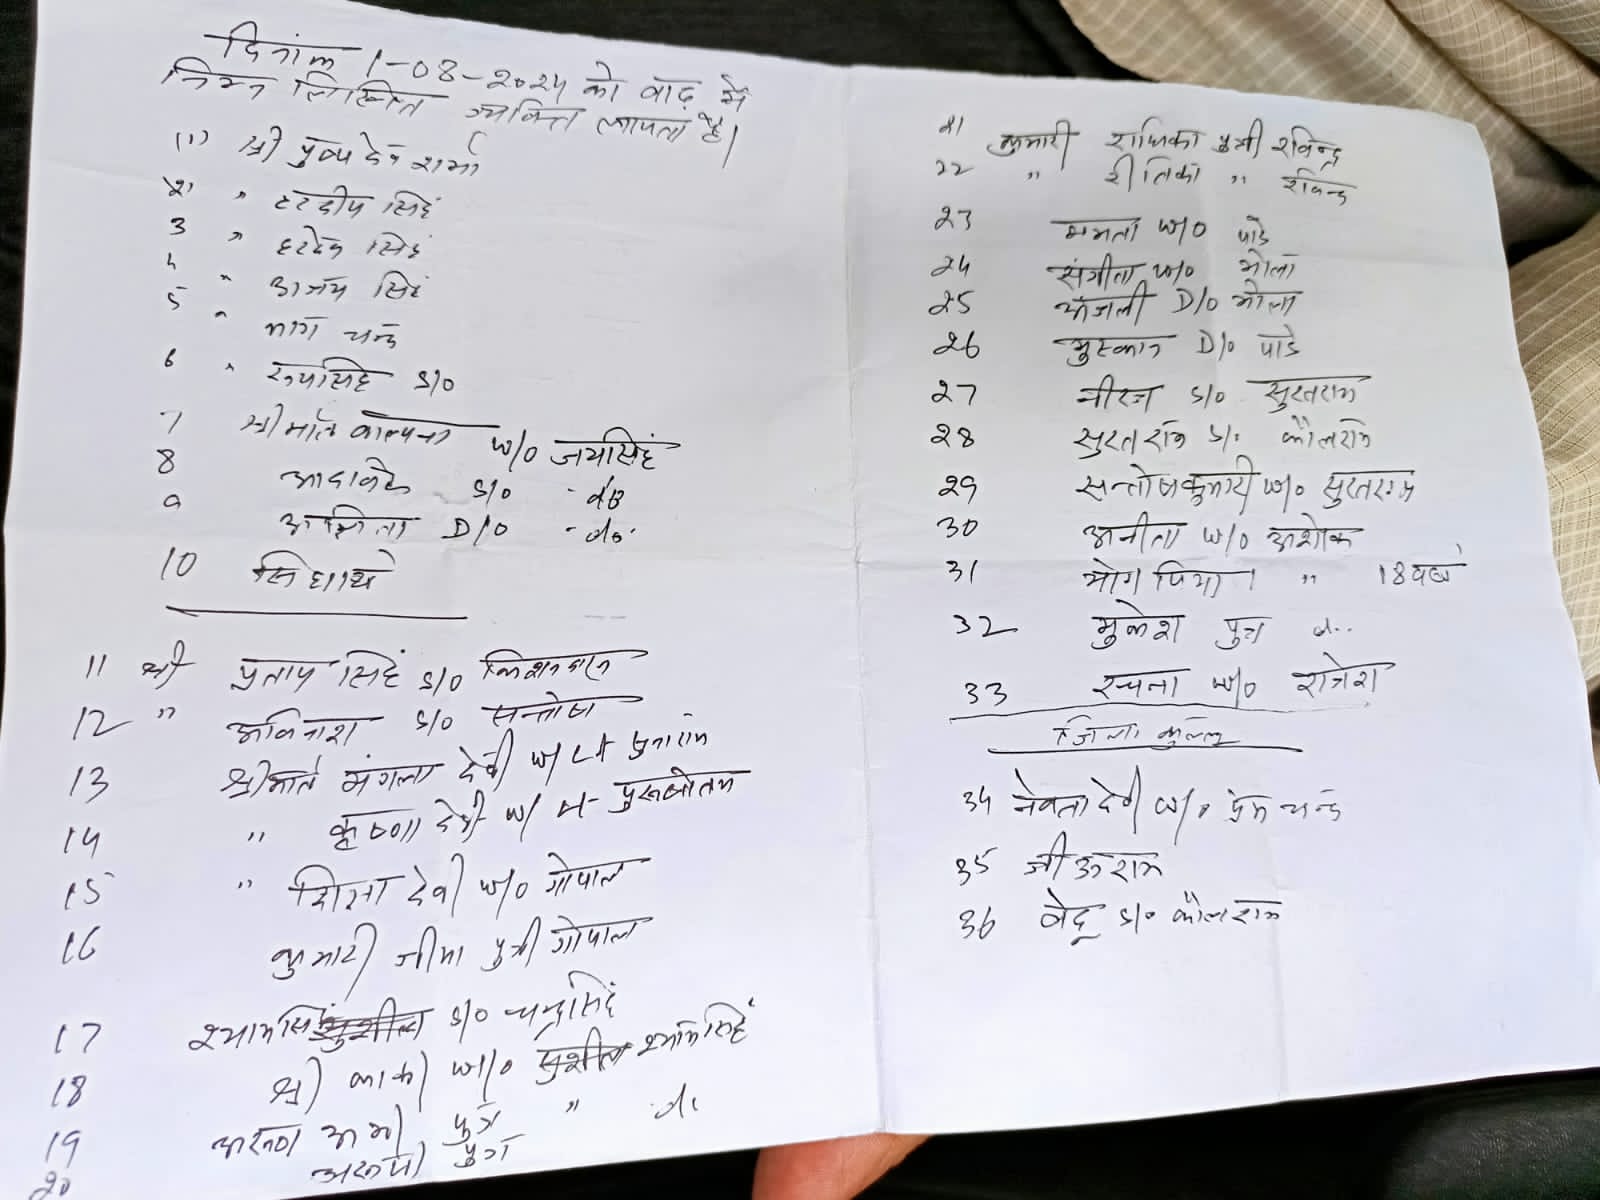 दिनांक 1-08-2024 को बाढ़ में
निम्न लिखित व्यक्ति लापता है।
(1) श्री पुष्प देव शर्मा
2 " हरदीप सिहं
3 " हरदेव सिहं
4 " अजय सिहं
5 " भाग चन्द
6 " रूपसिहं S/O
7 श्रीमति कल्पना W/O जयसिहं
8 S/O -do-
9 D/O -do-
10 सिधार्थ
11 श्री प्रताप सिहं S/O
12 " अविनाश S/O सन्तोष
13 श्रीमति मंगला देवी W/
14 " कृष्णा देवी W/ पुरूषोतम
15 " शिला देवी W/O गोपाल
16 कुमारी जीया पुत्री गोपाल
17 श्यामसिहं S/O चन्द्रसिहं
18 श्री W/O श्यामसिहं
19 पुत्र " do
20 पुत्र
21 कुमारी राधिका पुत्री रविन्द्र
22 " रीतिका " रविन्द्र
23 ममता W/O पांडे
24 संगीता W/O भोला
25 अंजली D/O भोला
26 मुस्कान D/O पांडे
27 नीरज S/O सुरतराम
28 सुरत राम S/O कौलराम
29 सन्तोष कुमारी W/O सुरतराम
30 अनीता W/O अशोक
31 योग प्रिया । " 18 वर्ष
32 मुकेश पुत्र d..
33 रचना W/O राजेश
जिला कुल्लू
34 देवी W/O प्रेम चन्द
35 राम
36 वेदू S/O कौलराम